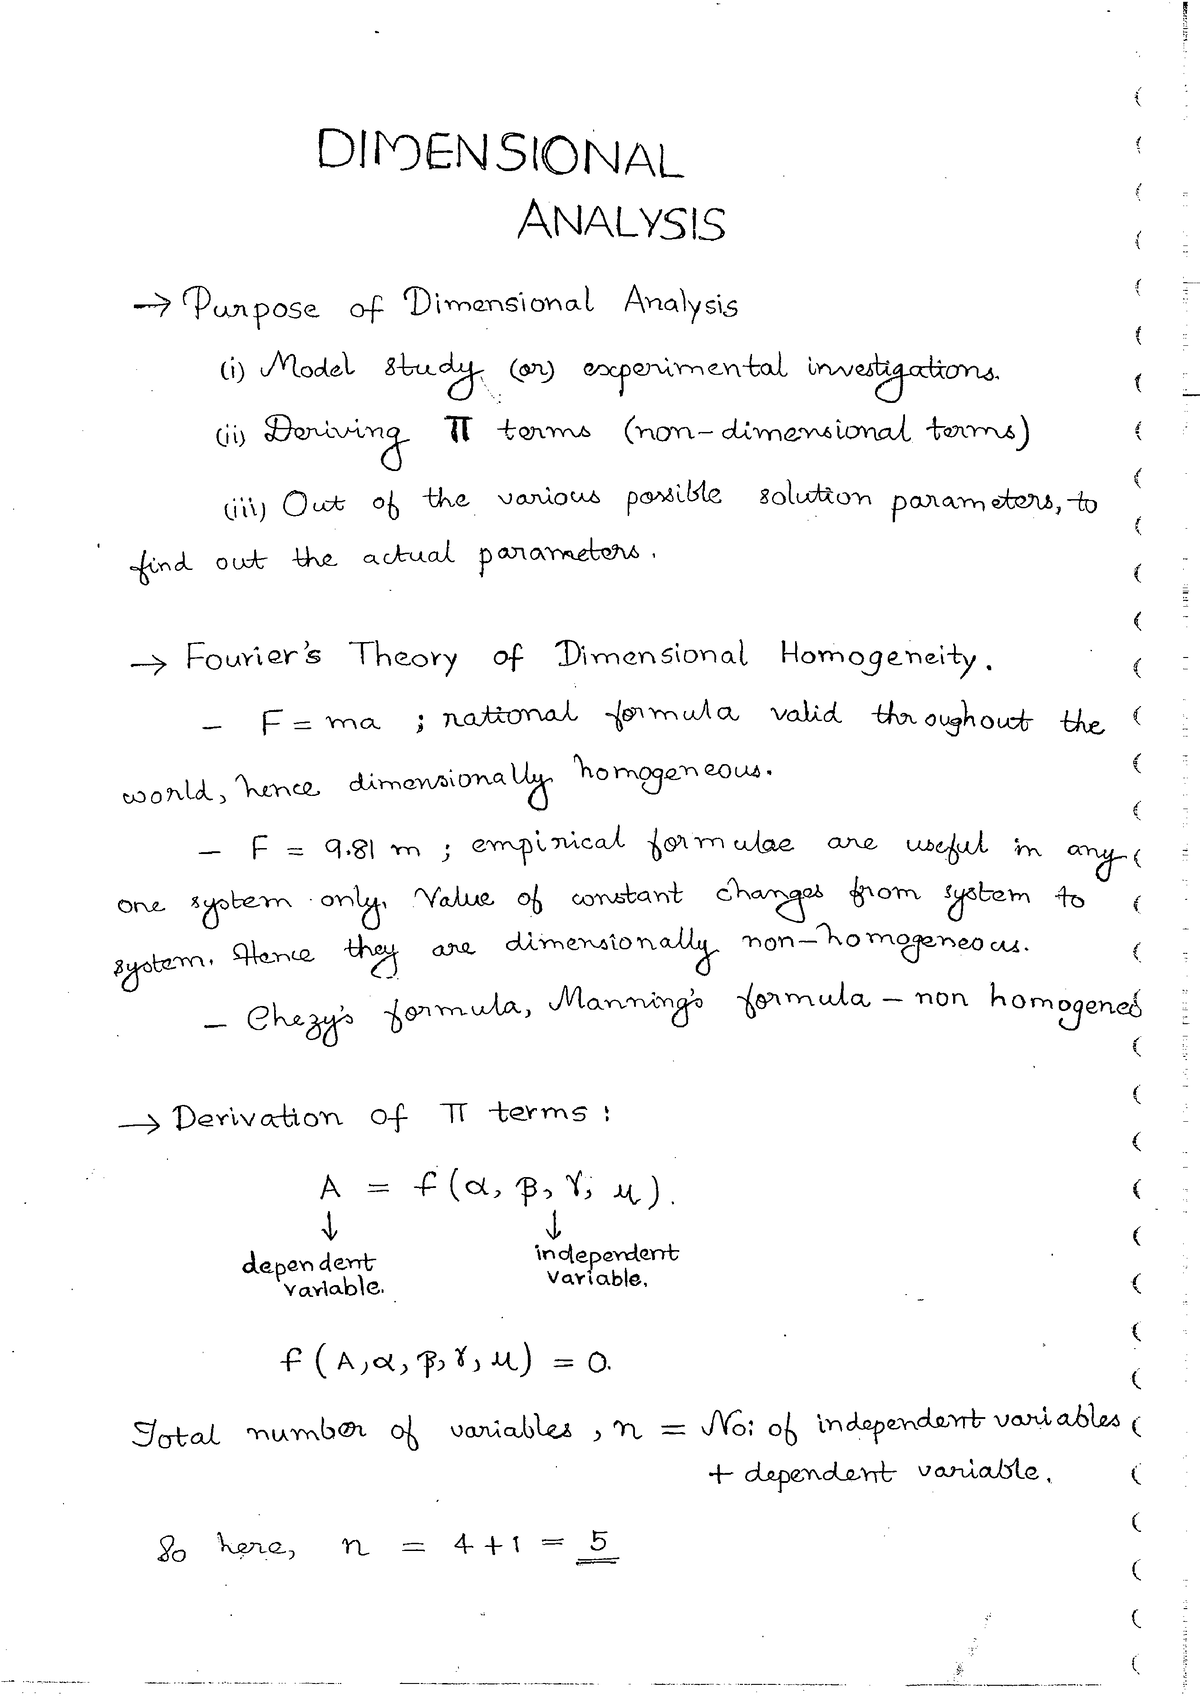 DIMENSIONAL
ANALYSIS
→ Purpose of Dimensional Analysis
(i) Model study (or) experimental investigations.
(ii) Deriving π terms (non-dimensional terms)
(iii) Out of the various possible solution parameters, to
find out the actual parameters.
→ Fourier's Theory of Dimensional Homogeneity.
– F = ma ; rational formula valid throughout the
world, hence dimensionally homogeneous.
– F = 9.81 m ; empirical formulae are useful in any
one system only. Value of constant changes from system to
system. Hence they are dimensionally non-homogeneous.
– Chezy's formula, Manning's formula – non homogeneo
→ Derivation of π terms :
A = f(α, β, γ, μ).
↓ ↓
dependent variable. independent variable.
f (A, α, β, γ, μ) = 0.
Total number of variables, n = No: of independent variables
+ dependent variable.
So here, n = 4 + 1 = 5